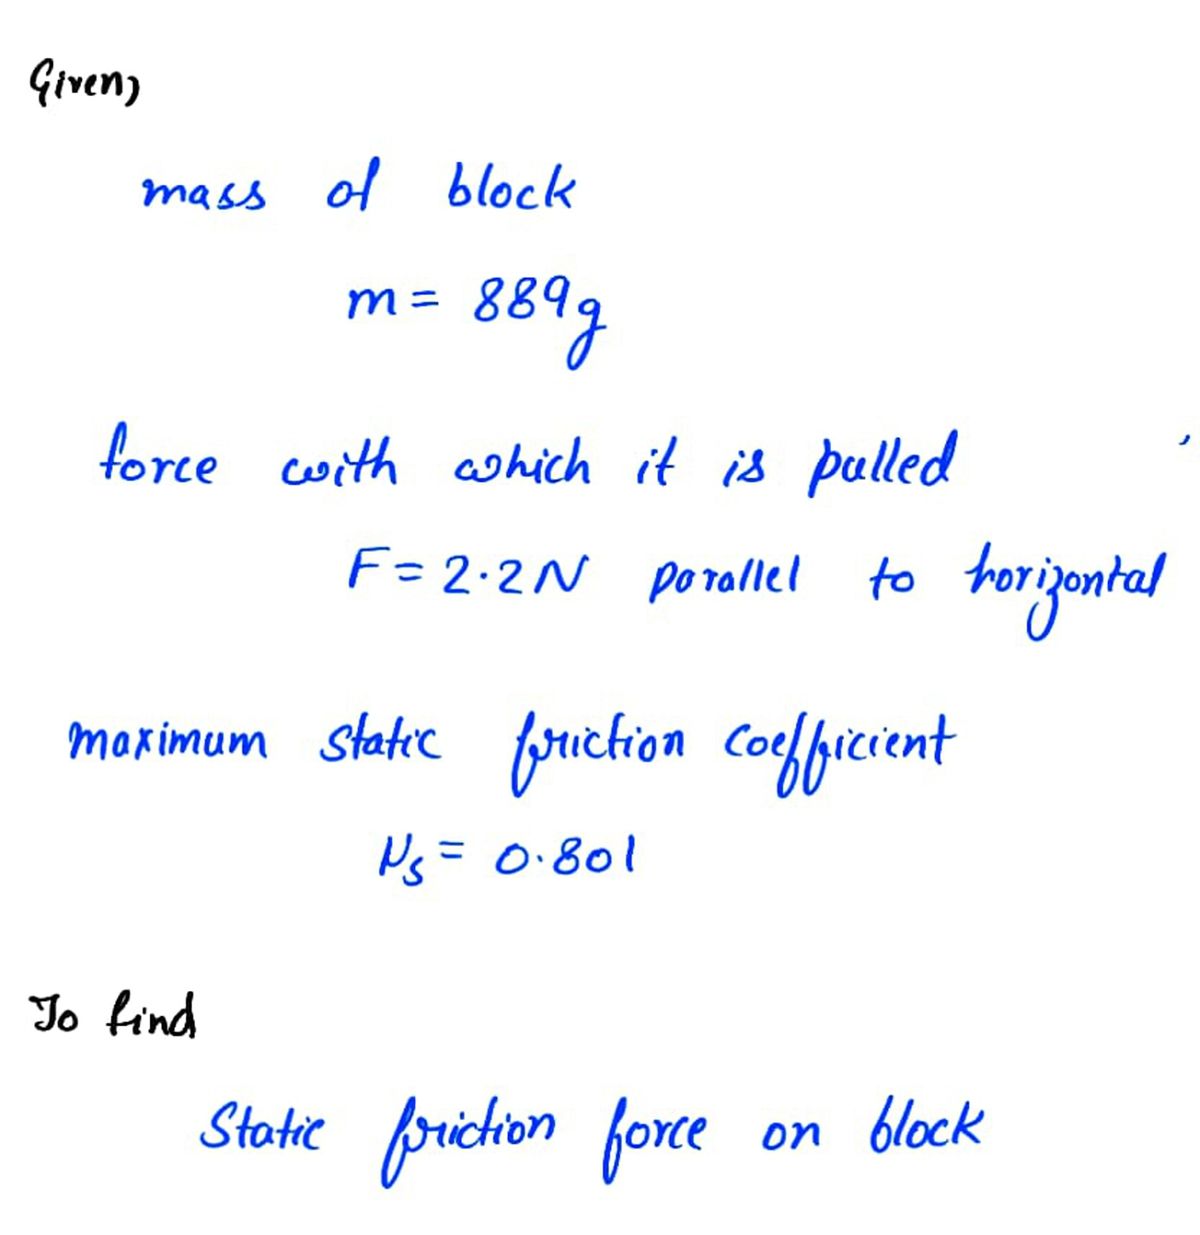 Given,
mass of block
m = 889g
force with which it is pulled
F = 2.2N parallel to horizontal
maximum static friction coefficient
μs = 0.801
To find
Static friction force on block